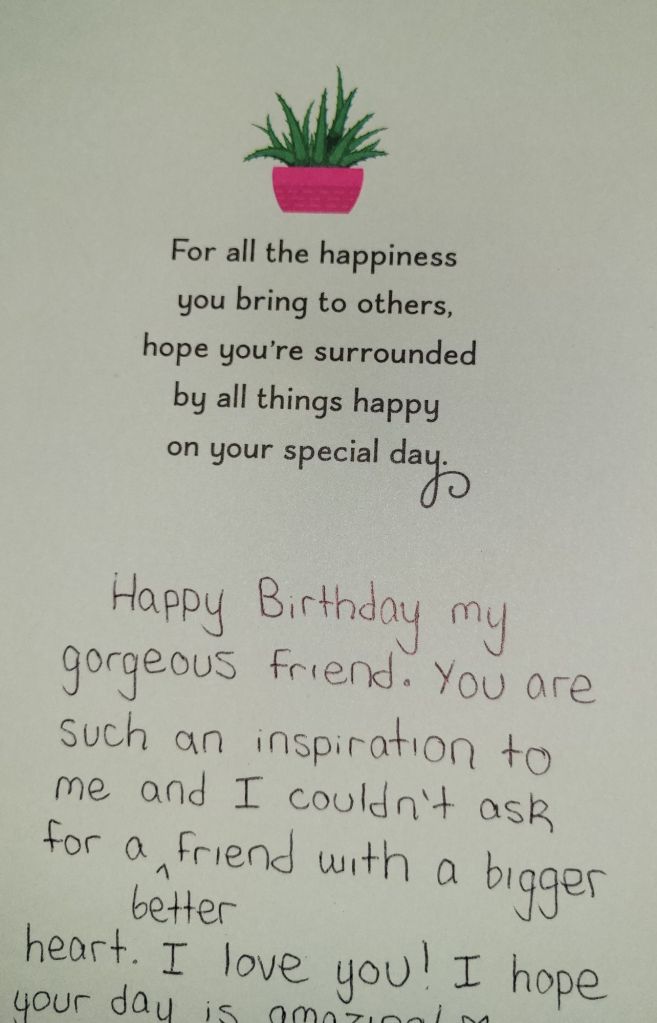 For all the happiness
you bring to others,
hope you're surrounded
by all things happy
on your special day.
Happy Birthday my
gorgeous friend. You are
such an inspiration to
me and I couldn't ask
for a ^ friend with a bigger
better
heart. I love you! I hope
your day is amazing! ♡